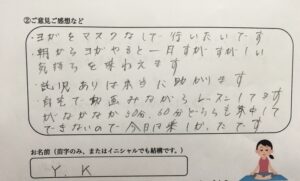 ②ご意見ご感想など
・ヨガをマスクなしで行いたいです
・朝からヨガやると一日すがすがしい
気持ちを味わえます
・託児ありは本当に助かります
・自宅で動画みながらレッスンしてます
がなかなか30分、60分どちらも集中して
できないので今日は楽しかったです
お名前(苗字のみ、またはイニシャルでも結構です。)
Y. K